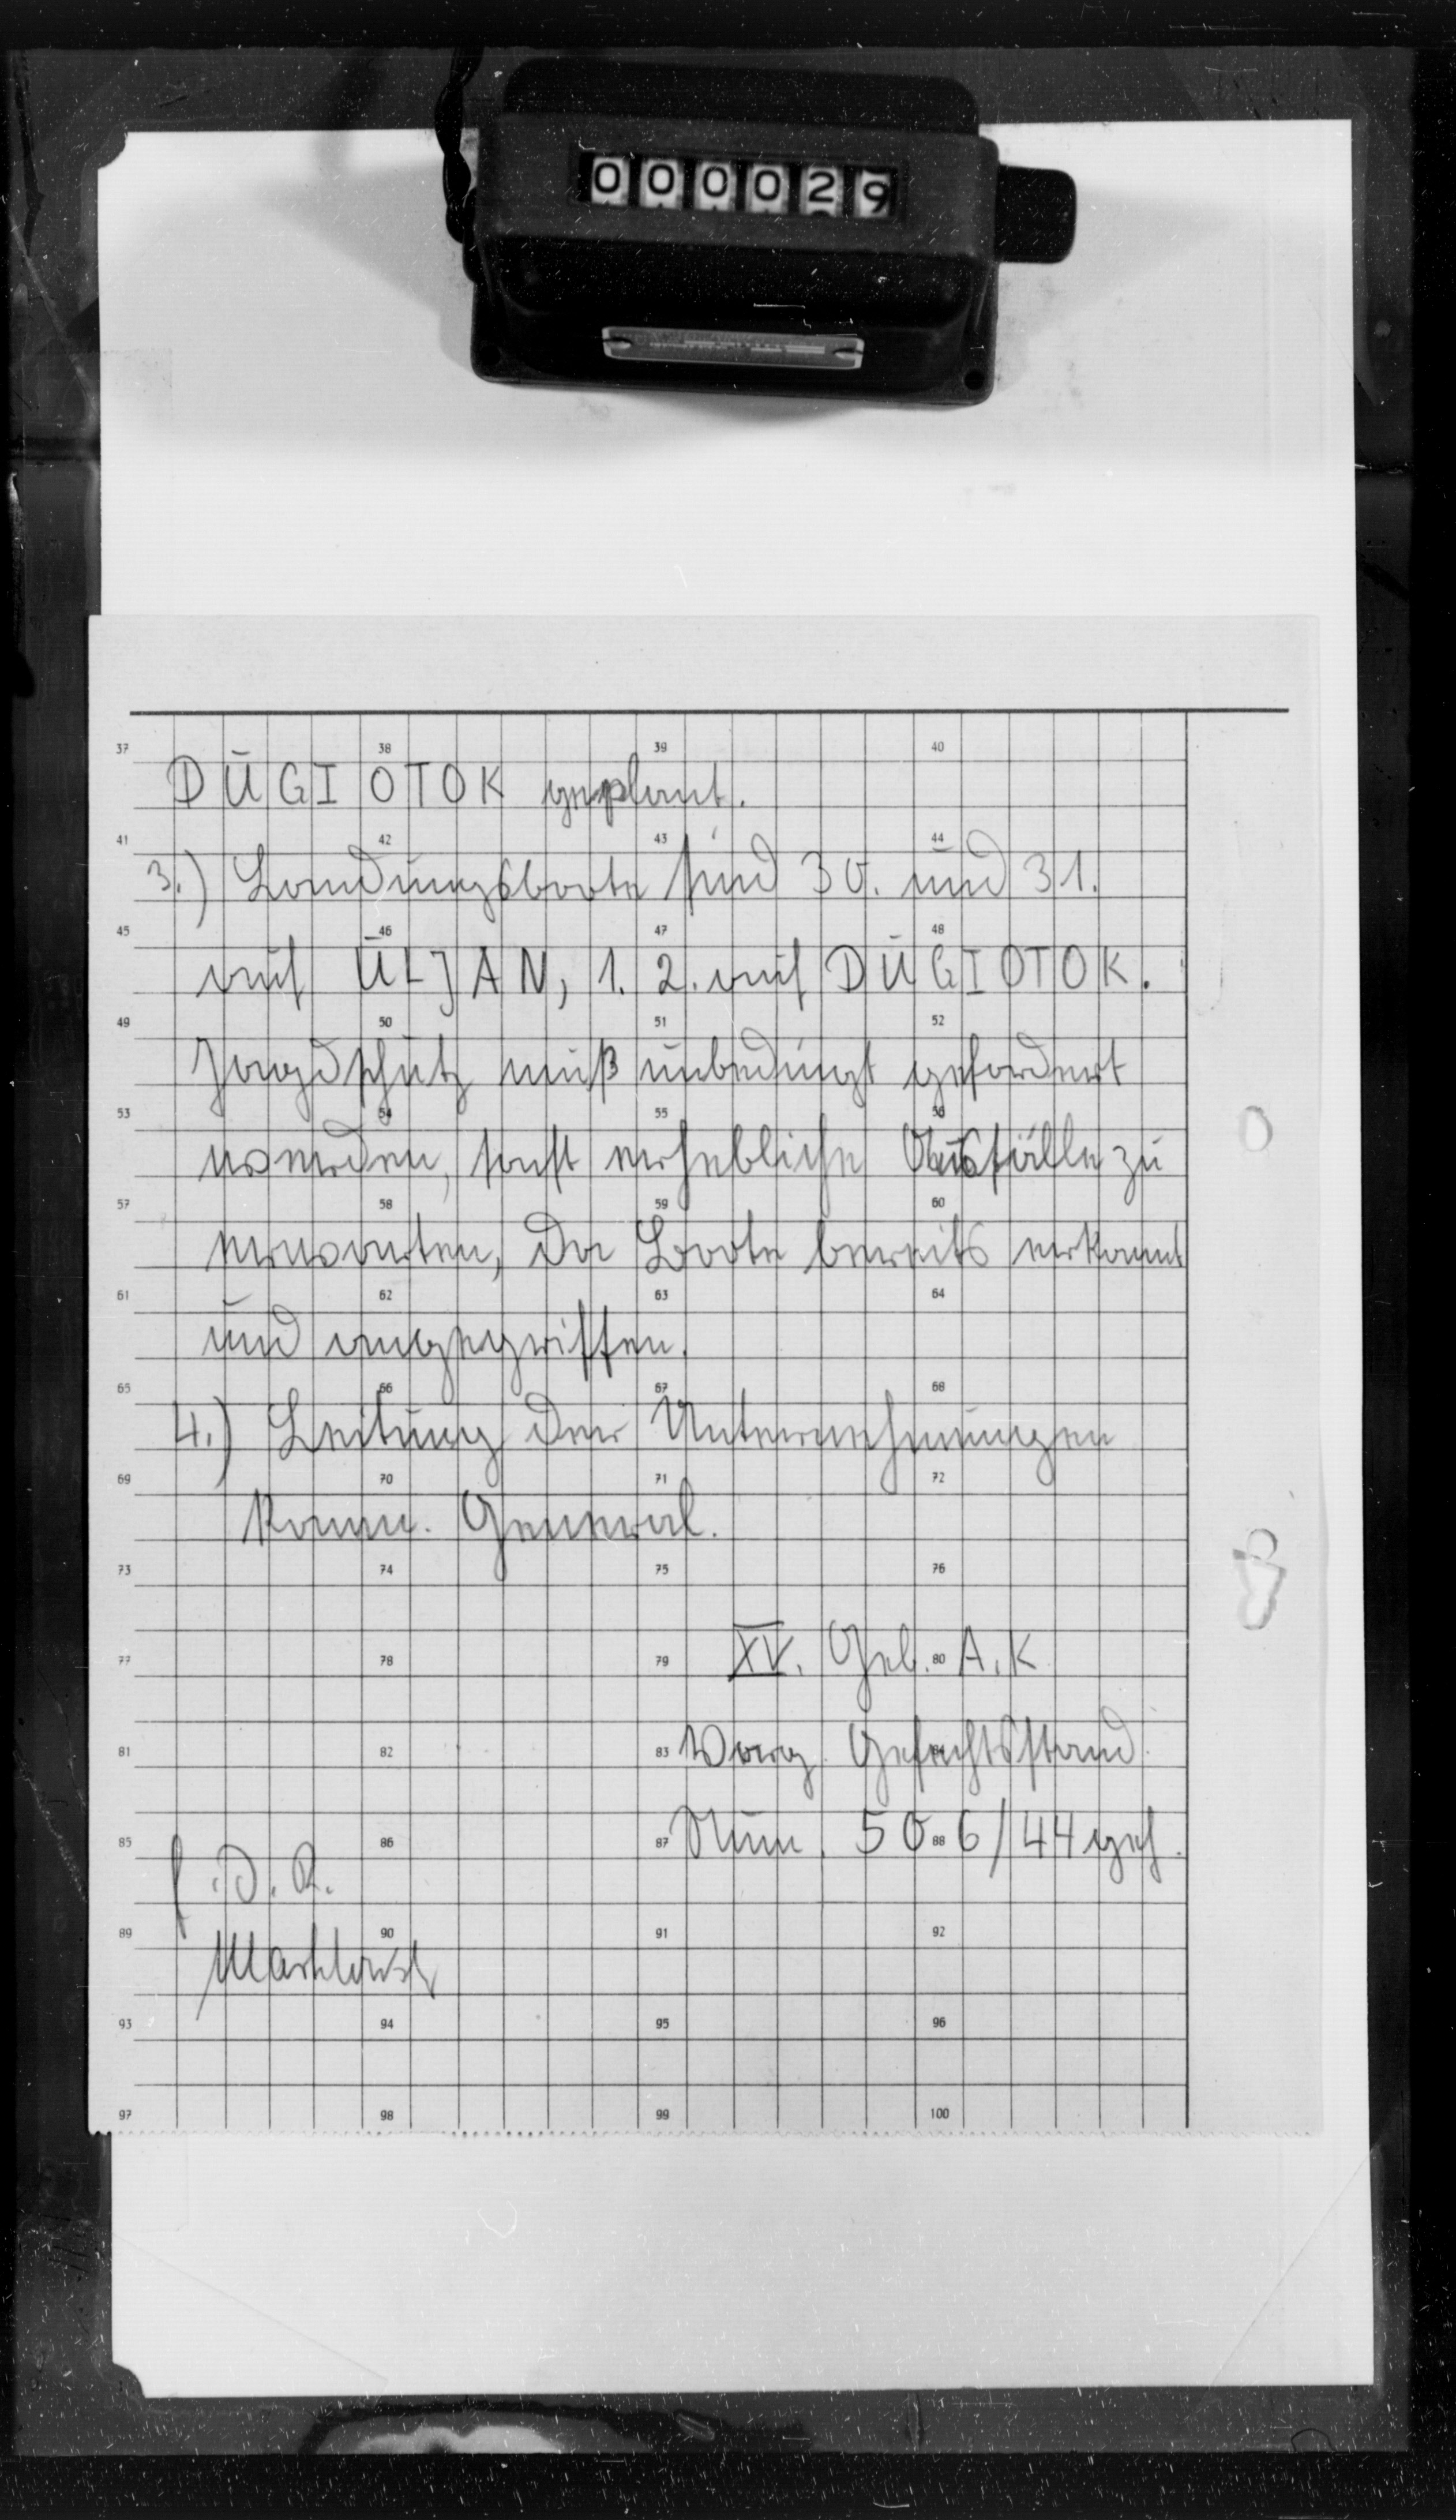 000029
37 38 39 40
DUGI OTOK geplant.
41 42 43 44
3.) Landungsboote sind 30. und 31.
45 46 47 48
auf ULJAN, 1. 2. auf DUGI OTOK.
49 50 51 52
Jagdschutz muß unbedingt gefordert
53 54 55 56
werden, sonst erhebliche Ausfälle zu
57 58 59 60
erwarten, da Boote bereits erkannt
61 62 63 64
und angegriffen.
65 66 67 68
4.) Leitung der Unternehmungen
69 70 71 72
Komm. General.
73 74 75 76
XV. Geb. A.K
77 78 79 80
Vorg. Gefechtsstand
81 82 83
Num. 506/44 geh.
85 86 87 88
f.d.R.
89 90 91 92
93 94 95 96
97 98 99 100